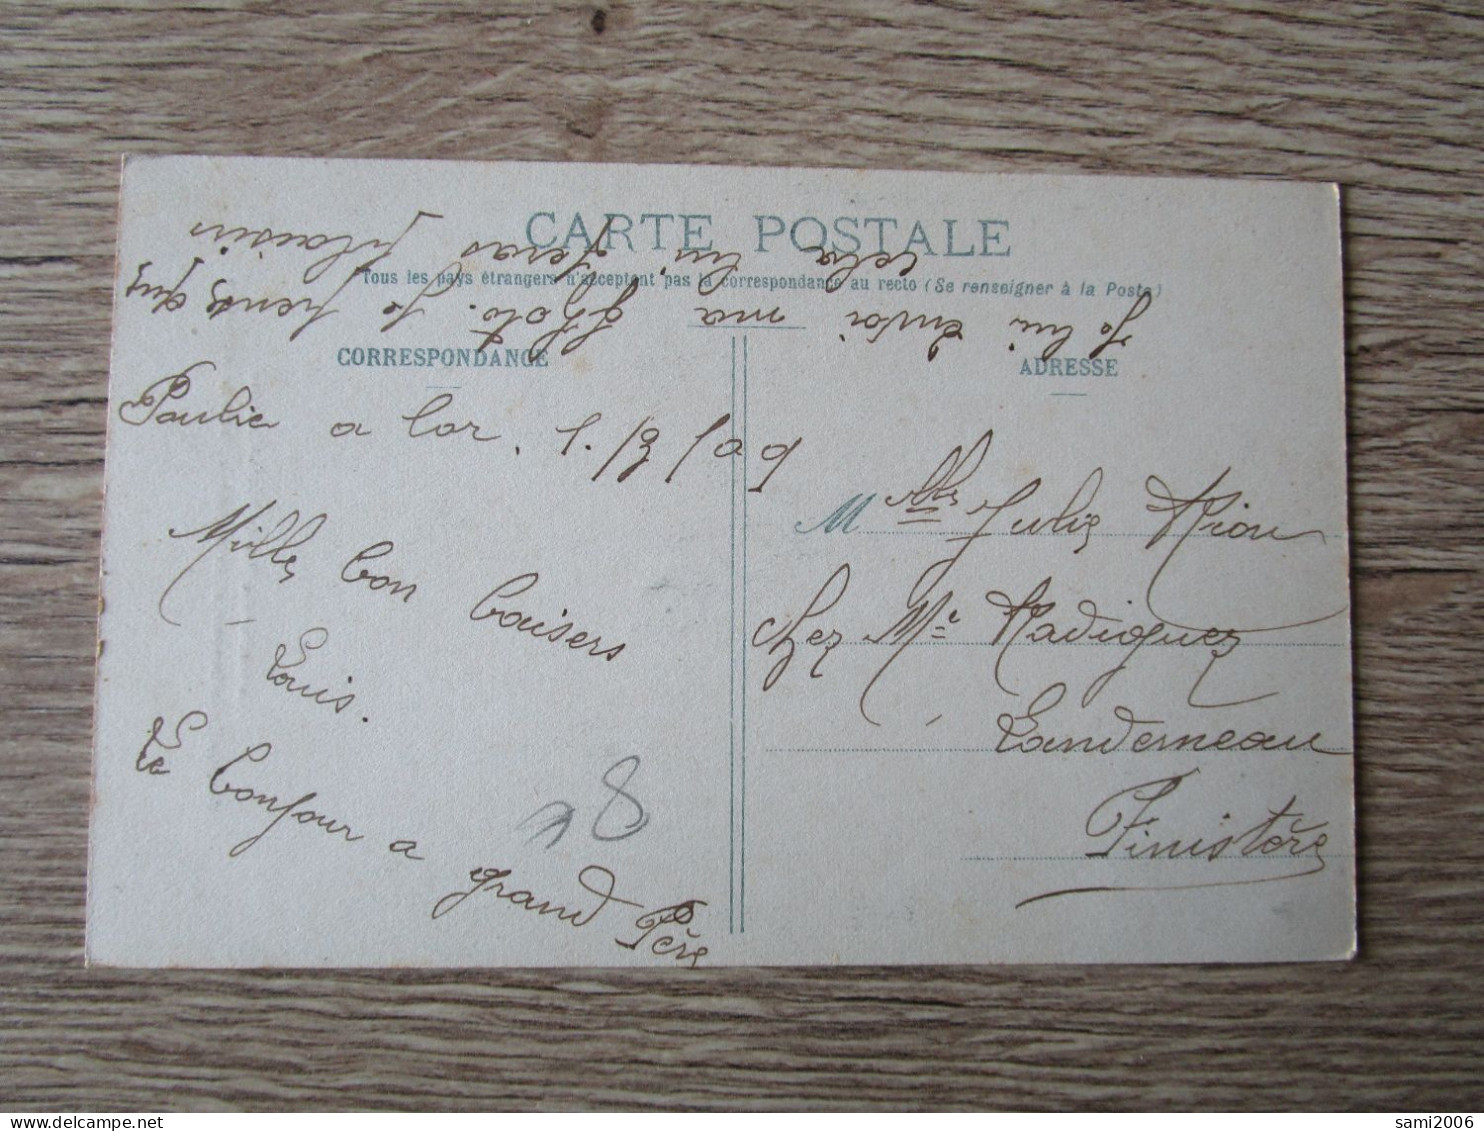 CARTE POSTALE
Tous les pays étrangers n'acceptent pas la correspondance au recto (Se renseigner à la Poste)
CORRESPONDANCE
ADRESSE
Je lui envoi ma photo. Je pense que
cela lui feras plaisir
Paulic a Lor. 1/3/09
Mille bon baisers
Louis.
Le bonjour a
grand Père
8
M Elle Julie Riou
chez Mr Radiguez
Landerneau
Finistère
sami2006